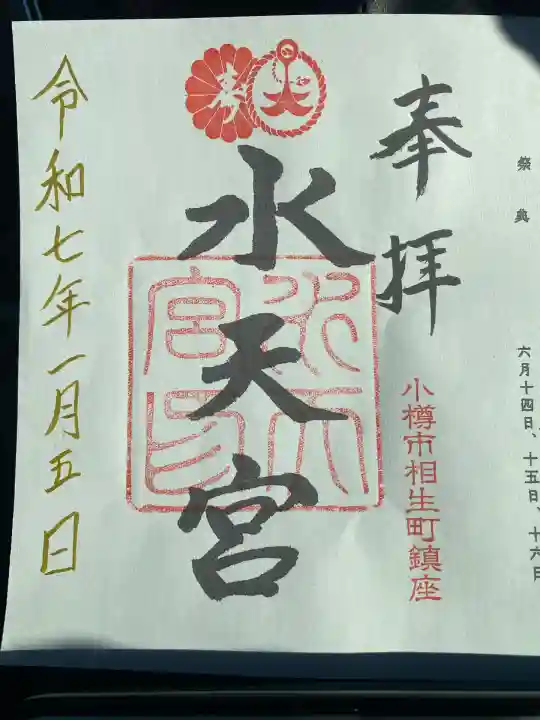 祭典
六月十四日、十五日、十六日
奉拝
小樽市相生町鎮座
水天宮
令和七年一月五日